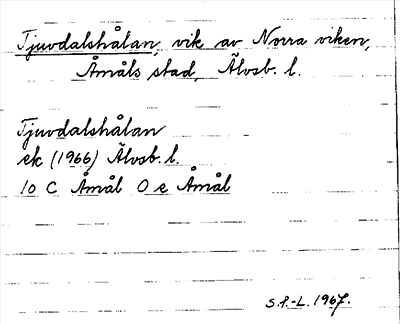 Tjuvdalshålan, vik av Norra viken,
Åmåls stad, Älvsb. l.
Tjuvdalshålan
ek (1966) Älvsb. l.
10 C Åmål O e Åmål
S.f.-L. 1967.